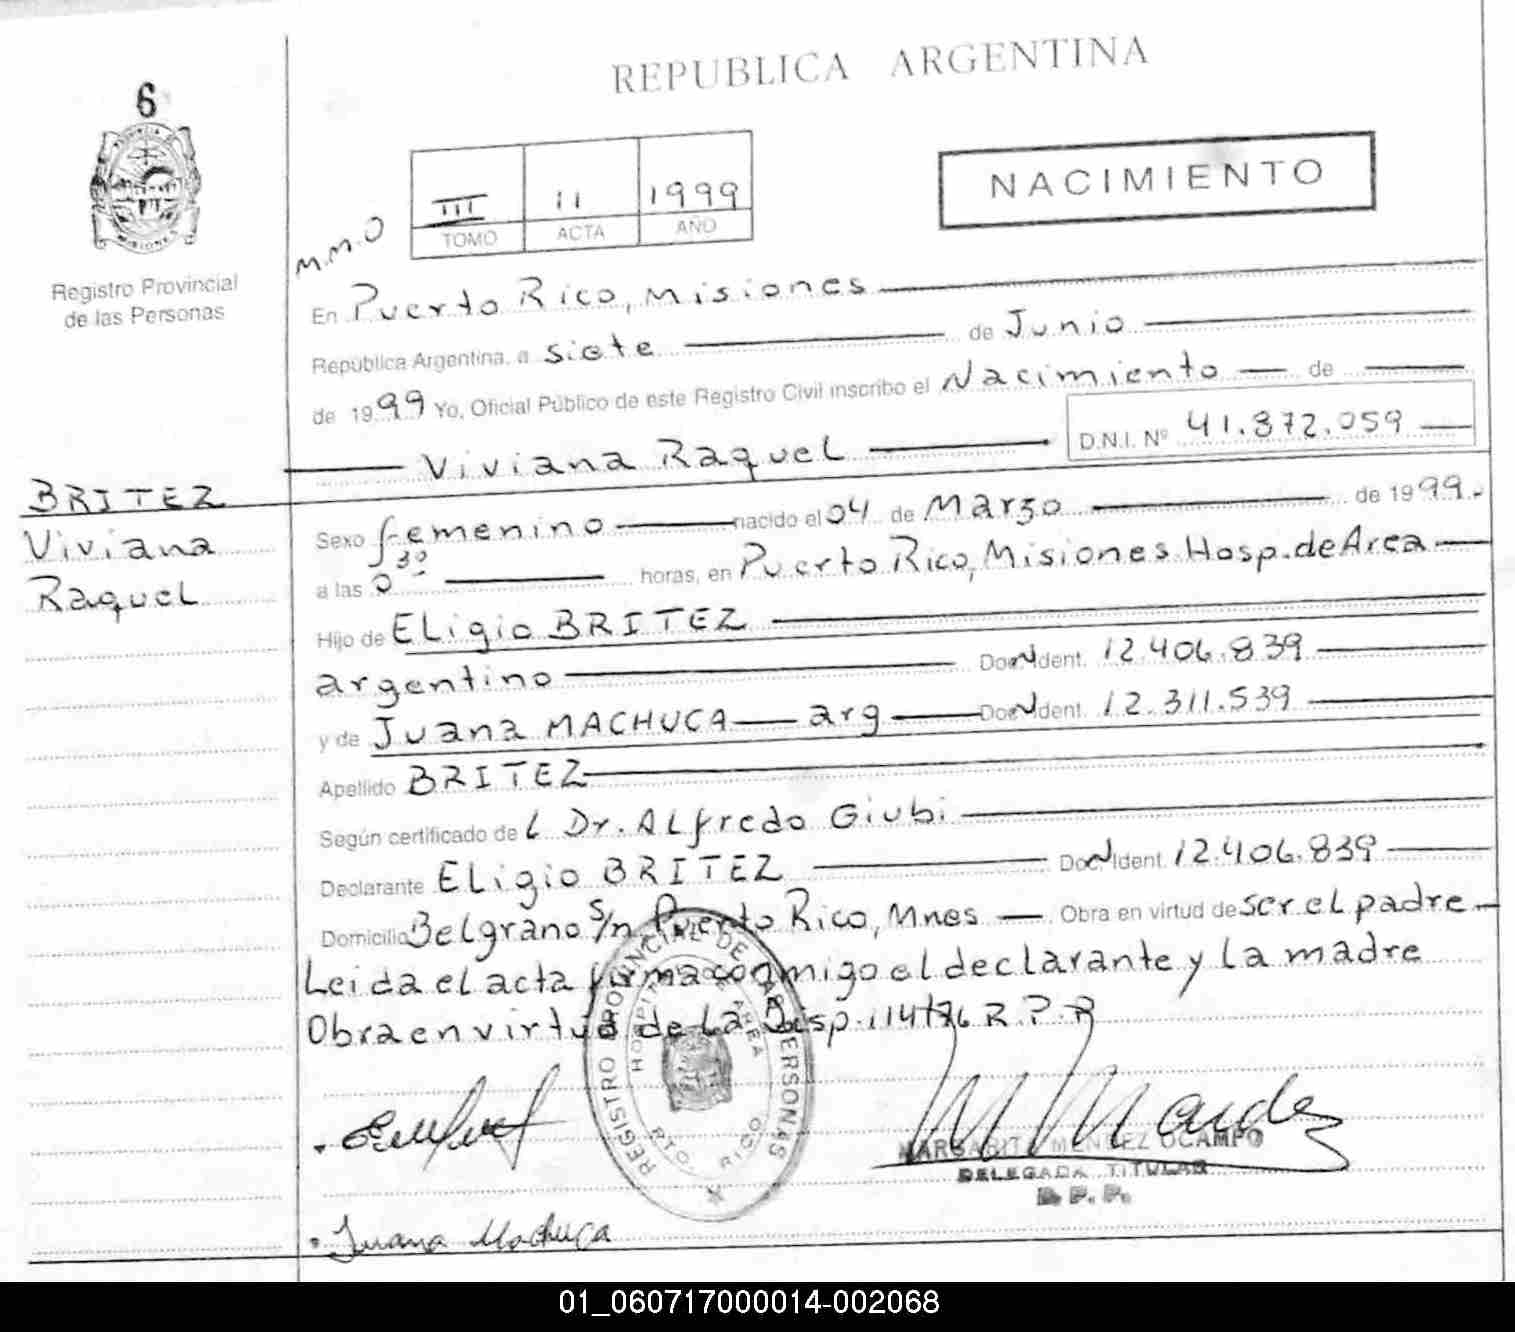 REPUBLICA ARGENTINA
6
Registro Provincial
de las Personas
III 11 1999
TOMO ACTA AÑO
NACIMIENTO
M.M.O
En Puerto Rico, Misiones
República Argentina, a siete de Junio
de 1999 Yo, Oficial Público de este Registro Civil inscribo el Nacimiento de
Viviana Raquel D.N.I. Nº 41.872.059
BRITEZ
Viviana
Raquel
Sexo femenino nacido el 04 de Marzo de 1999.
a las 0 30 horas, en Puerto Rico, Misiones Hosp. de Area
Hijo de ELigio BRITEZ
argentino Doc. Ident. 12.406.839
y de Juana MACHUCA arg Doc. Ident. 12.311.539
Apellido BRITEZ
Según certificado del Dr. ALfredo Giubi
Declarante ELigio BRITEZ Doc. Ident. 12.406.839
Domicilio Belgrano s/n Puerto Rico, Mnes Obra en virtud de ser el padre
Leida el acta firma conmigo el declarante y la madre
Obra en virtud de La Disp. 114/96 R.P.P
REGISTRO PROVINCIAL DE LAS PERSONAS
HOSPITAL DE AREA
PTO. RICO
MARGARITA MENDEZ OCAMPO
DELEGADA TITULAR
R. P. P.
Juana Machuca
01_060717000014-002068